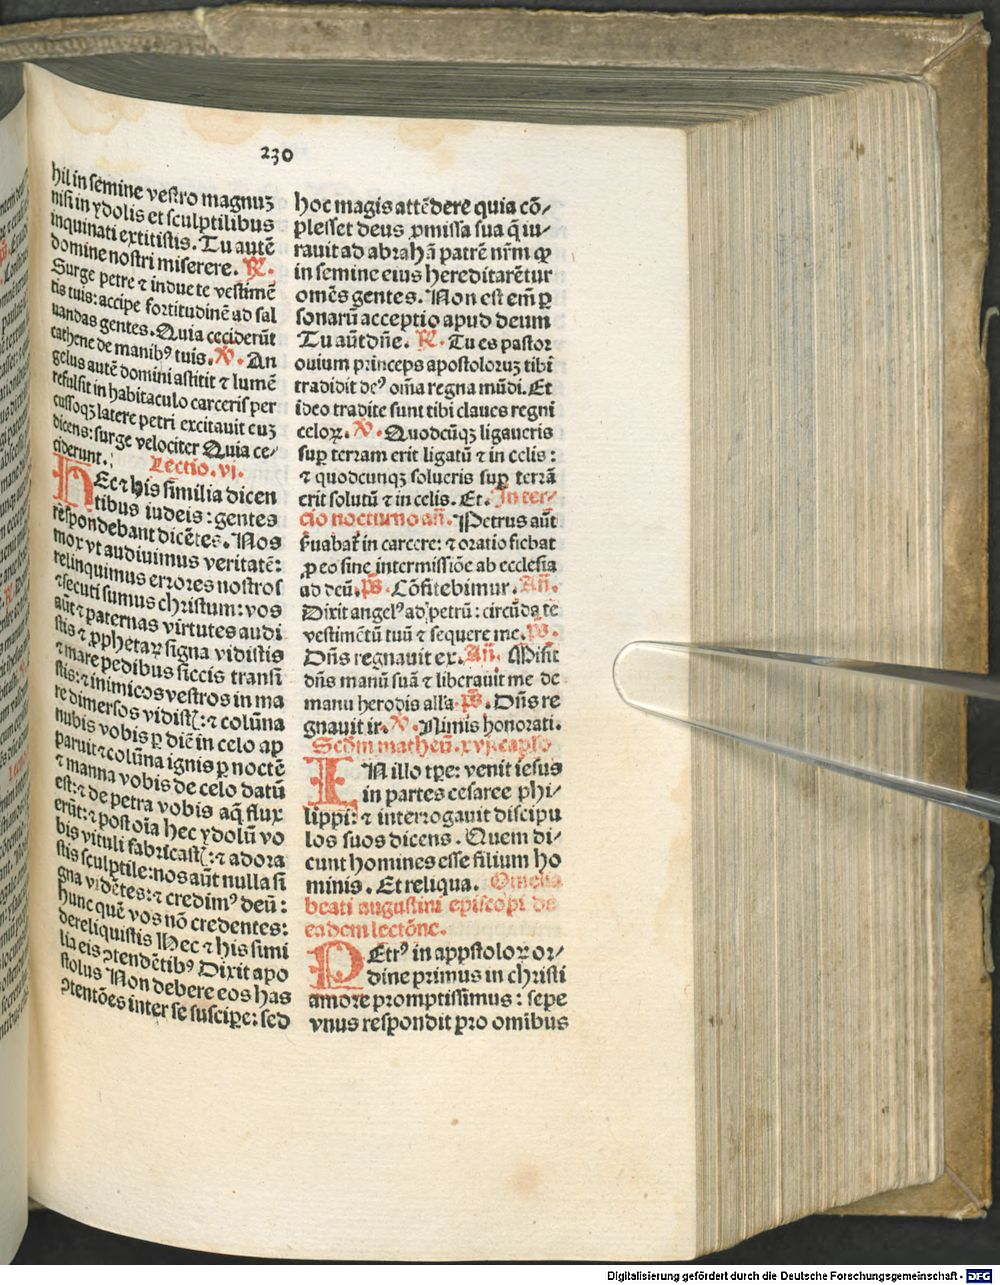 230
hil in semine vestro magnuꝫ
nisi in ydolis et sculptilibus
inquinati extitistis. Tu autē
domine nostri miserere. ℟.
Surge petre ⁊ indue te vestimē
tis tuis: accipe fortitudinē ad sal
uandas gentes. Quia ceciderūt
cathene de manibꝰ tuis. ℣. An
gelus autē domini astitit ⁊ lumē
refulsit in habitaculo carceris per
cussoqꝫ latere petri excitauit euꝫ
dicens: surge velociter Quia ce⸗
ciderunt.
Lectio. vj.
HEc ⁊ his similia dicen
tibus iudeis: gentes
respondebant dicētes. Nos
mox vt audiuimus veritatē:
relinquimus errores nostros
⁊ secuti sumus christum: vos
aūt ⁊ paternas virtutes audi
stis ⁊ ꝓphetaꝝ signa vidistis
⁊ mare pedibus siccis transi
stis: ⁊ inimicos vestros in ma
re dimersos vidist(: ⁊ colūna
nubis vobis ꝑ diē in celo ap
paruit ⁊ colūna ignis ꝑ noctē
⁊ manna vobis de celo datū
est: ⁊ de petra vobis aq̄ flux
erūt: ⁊ post oīa hec ydolū vo
bis vituli fabricast(: ⁊ adora
stis sculptile: nos aūt nulla si
gna vidētes: ⁊ credimꝰ deū:
hunc quē vos nō credentes:
dereliquistis Hec ⁊ his simi
lia eis ꝯtendētibꝰ Dixit apo
stolus Non debere eos has
ꝯtentōes inter se suscipe: sed
hoc magis attēdere quia cō⸗
plesset deus ꝓmissa sua q̄ iu⸗
rauit ad abrahā patrē nr̄m ꝙ
in semine eius hereditarētur
omēs gentes. Non est em̄ ꝑ
sonarū acceptio apud deum
Tu aūt dn̄e. ℟. Tu es pastor
ouium princeps apostoloruꝫ tibi
tradidit deꝰ om̄a regna mūdi. Et
ideo tradite sunt tibi claues regni
celoꝝ. ℣. Quodcūqꝫ ligaueris
suꝑ terram erit ligatū ⁊ in celis:
⁊ quodcunqꝫ solueris suꝑ terrā
erit solutū ⁊ in celis. Et. In ter⸗
cio nocturno an̄. Petrus aūt
ẜuabat̄ in carcere: ⁊ oratio fiebat
ꝓ eo sine intermissiōe ab ecclesia
ad deū. p̄s. Cōfitebimur. An̄.
Dixit angelꝰ ad petrū: circūda te
vestimētū tuū ⁊ sequere me. p̄s.
Dn̄s regnauit ex. An̄. Misit
dn̄s manū suā ⁊ liberauit me de
manu herodis alla. p̄s. Dn̄s re
gnauit ir. ℣. Nimis honorati.
Scd̄m matheū. xvj. caplo
IN illo tꝑe: venit iesus
in partes cesaree phi⸗
lippi: ⁊ interrogauit discipu
los suos dicens. Quem di⸗
cunt homines esse filium ho
minis. Et reliqua. Omelia
beati augustini episcopi de
eadem lectōne.
PEtrꝰ in appstoloꝝ or⸗
dine primus in christi
amore promptissimus: sepe
vnus respondit pro omibus
Digitalisierung gefördert durch die Deutsche Forschungsgemeinschaft - DFG